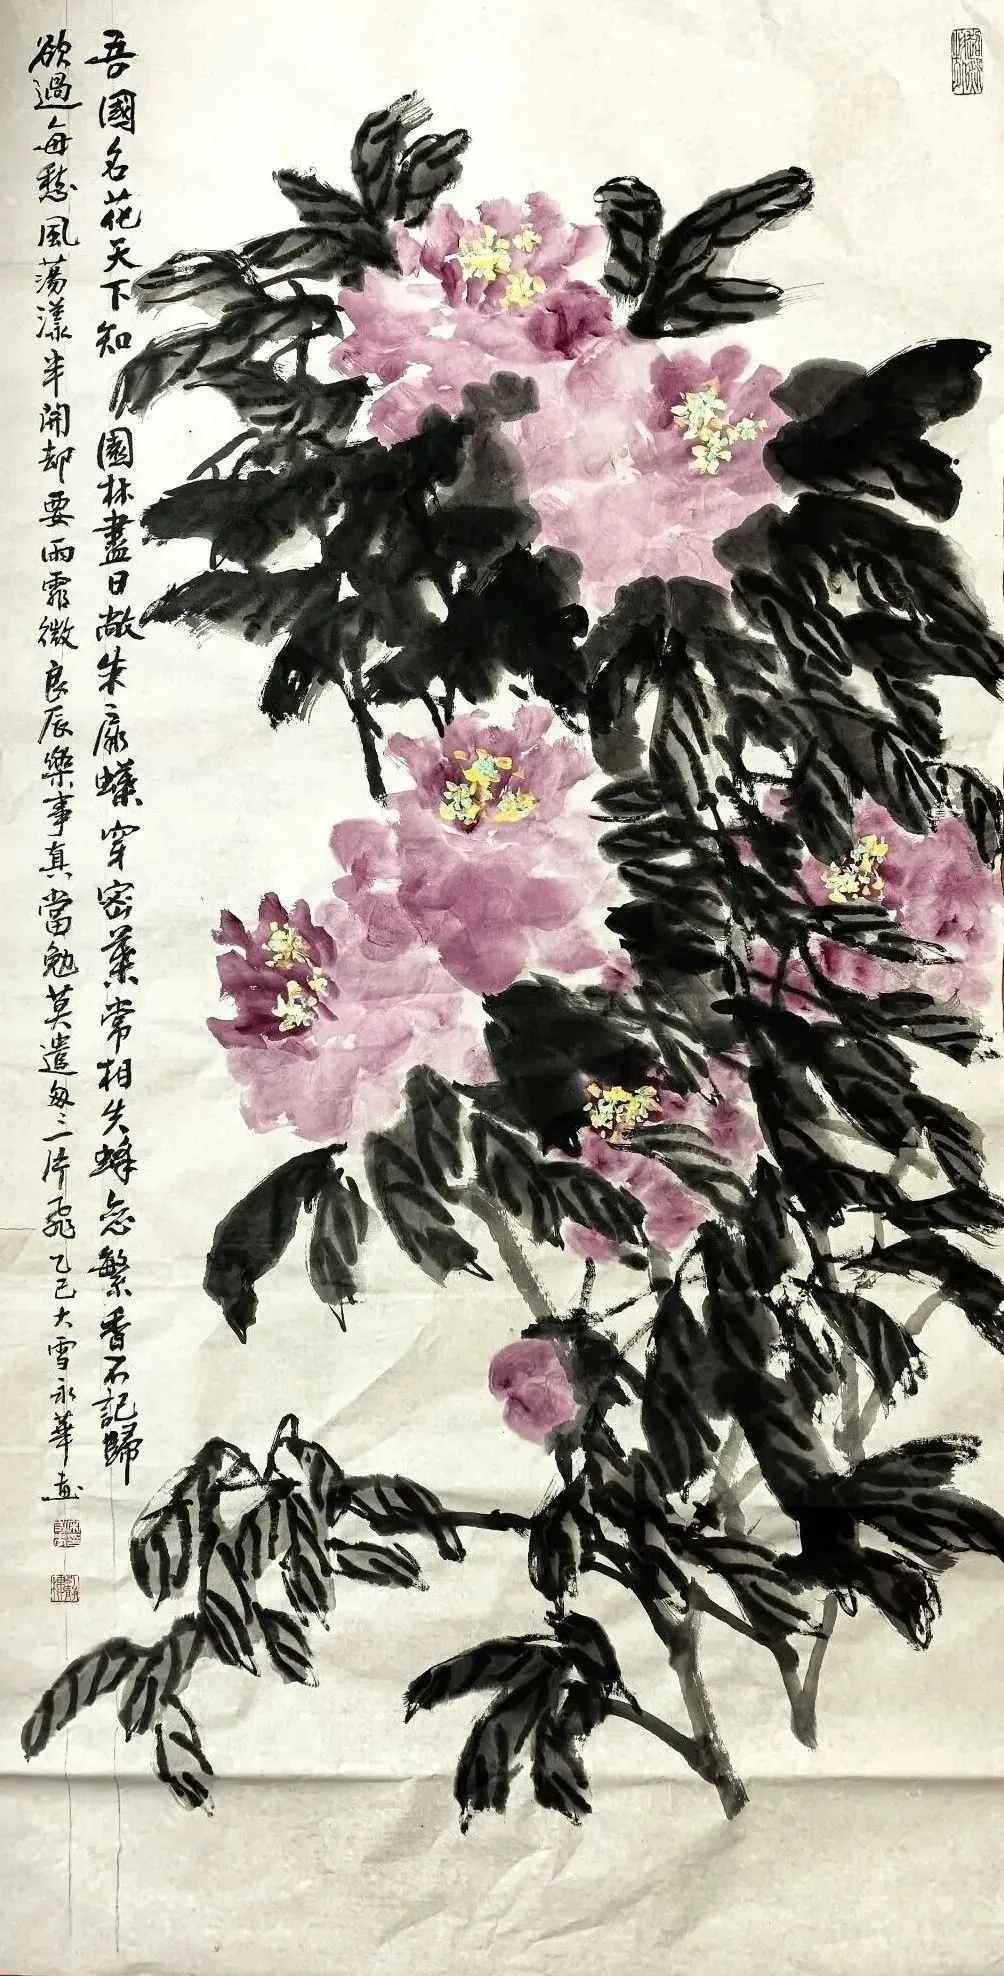 吾國名花天下知園林盡日敞朱扉蝶穿密葉常相失蜂恋繁香不記歸
欲過每愁風蕩漾半開却要雨霏微良辰樂事真當勉莫遣匆々一片飛乙巳大雪永華画